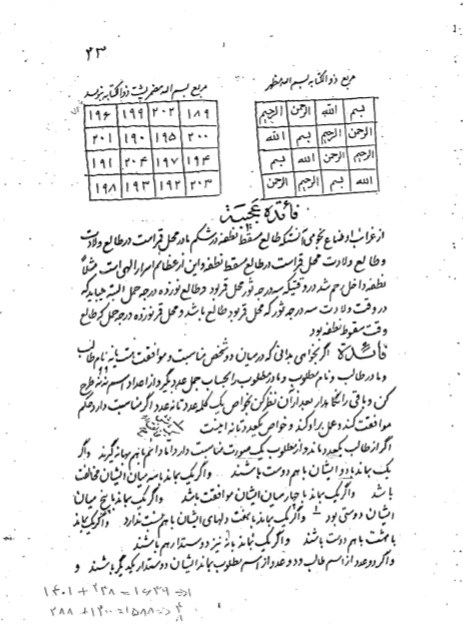 ۲۳
مربع ذوالکتابه بسم الله مظهر
بسم الله الرحمن الرحیم
الرحمن الرحیم بسم الله
الرحیم الرحمن الله بسم
الله بسم الرحیم الرحمن
مربع بسم الله مضمر پشت ذوالکتابه بنویسد
۱۸۹ ۲۰۲ ۱۹۹ ۱۹۶
۲۰۰ ۱۹۵ ۱۹۰ ۲۰۱
۱۹۴ ۱۹۷ ۲۰۴ ۱۹۱
۲۰۳ ۱۹۲ ۱۹۳ ۱۹۸
فائدة عجیبة
از غرائب اوضاع نجومی آنستکه طالع مسقط نطفه در شکم مادر محل قمر است در طالع ولادت
و طالع ولادت محل قمر است در طالع مسقط نطفه و این از عظائم اسرار الهی است مثلاً
نطفه داخل رحم شد در وقتیکه سه درجه ثور محل قمر بود و طالع نوزده درجه حمل البته میباید که
در وقت ولادت سه درجه ثور که محل قمر بود طالع باشد و محل قمر نوزده درجه حمل که طالع
وقت سقوط نطفه بود
فائدة اگر بخواهی بدانی که در میان دو شخص مناسبت و موافقت هست یا نه نام طالب
و مادر طالب و نام مطلوب و مادر مطلوب را بحساب جمل عدد بگیر و از اعداد اسم نه نه طرح
کن و باقی را نگاهدار بعد از آن نظر کن بخواص یک یک عدد تا نه عدد اگر مناسبت دارد حکم
موافقت کند و عمل براو کند و خواص یکعدد تا نه اینست
اگر از طالب یکعدد ماند و از مطلوب یک صورت مناسبت دارد اما دائم با هم بهانه گیرند و اگر
یک بماند با دو ایشان با هم دوست باشند و اگر یک بماند با سه میان ایشان مخالفت
باشد و اگر یک بماند با چهار میان ایشان موافقت باشد و اگر یک بماند با پنج میان
ایشان دوستی بود و اگر یک بماند با هفت دلهای ایشان با هم نسبت ندارد و اگر یک بماند
با هشت با هم دوست باشند و اگر یک بماند با نه نیز دوستدار هم باشند
و اگر دو عدد از اسم طالب و دو عدد از اسم مطلوب بماند ایشان دوستدار یکدیگر باشند و
۱۴۰۱ + ۲۳۸ = ۱۶۳۹ => ۱
۲۸۸ + ۱۳۰۰ = ۱۵۸۸ => ۴